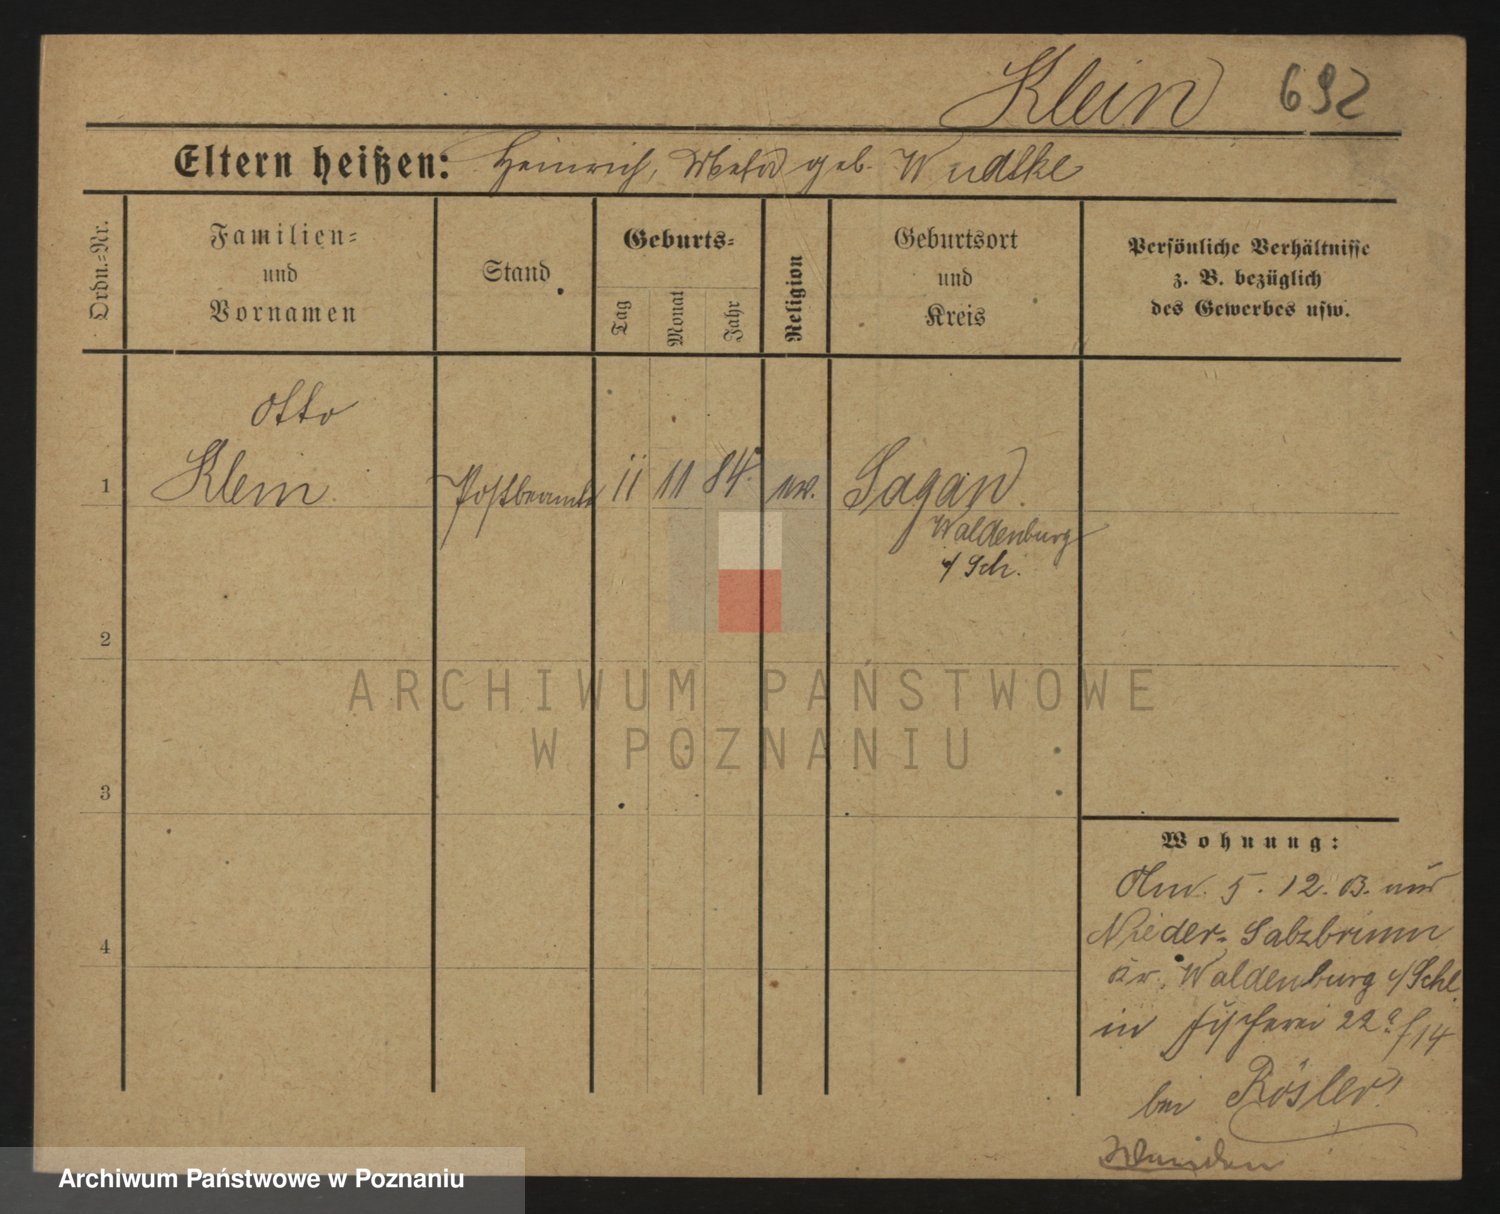 Klein 692
Eltern heißen: Heinrich, Meta geb. Wudtke
Ordn.=Nr.
Familien=
und
Vornamen
Stand
Geburts=
Tag
Monat
Jahr
Religion
Geburtsort
und
Kreis
Persönliche Verhältnisse
z. B. bezüglich
des Gewerbes usw.
Otto
1 Klein Postbeamte 11 11 84. ev. Sagan.
Waldenburg
i/Sch.
2
ARCHIWUM PAŃSTWOWE
W POZNANIU
3
Wohnung:
5. 12. 13. aus
4 Nieder=Salzbrunn
Kr. Waldenburg i/Schl.
in Fischerei 22a f/14
bei Rösler!
Archiwum Państwowe w Poznaniu